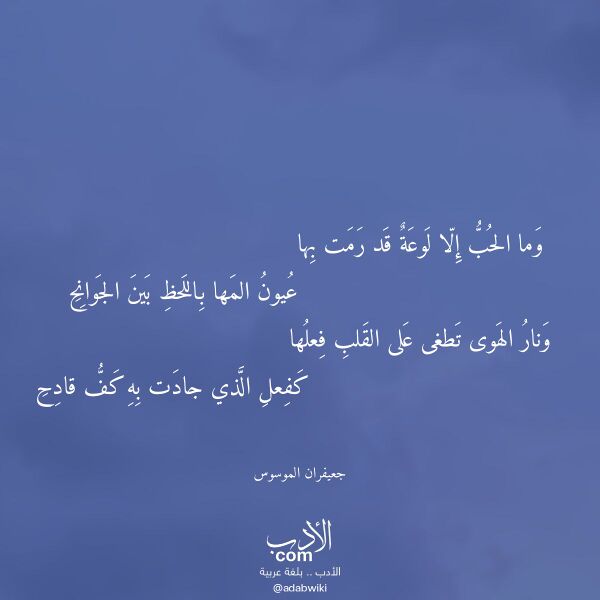 وَما الحُبُّ إِلّا لَوعَةٌ قَد رَمَت بِها
عُيونُ المَها بِاللَحظِ بَينَ الجَوانِحِ
وَنارُ الهَوى تَطغى عَلى القَلبِ فِعلُها
كَفِعلِ الَّذي جادَت بِهِ كَفُّ قادِحِ
جعيفران الموسوس
الأدب
com
الأدب .. بلغة عربية
@adabwiki